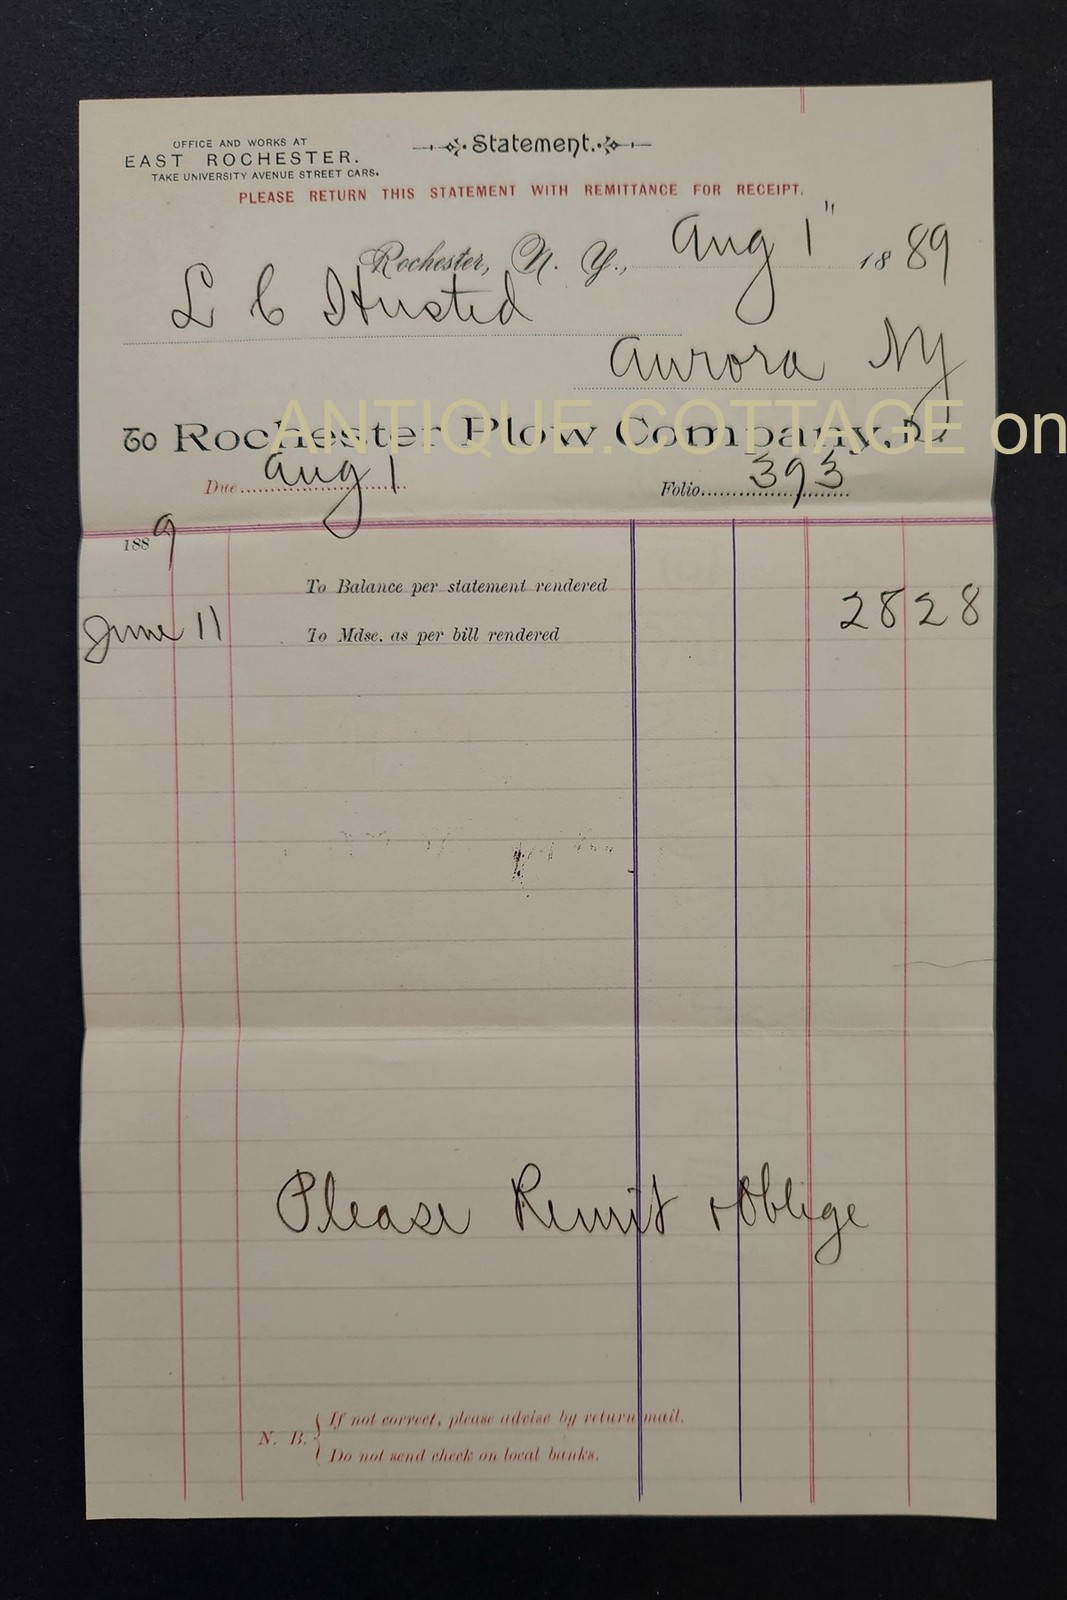 OFFICE AND WORKS AT
EAST ROCHESTER.
TAKE UNIVERSITY AVENUE STREET CARS.
Statement.
PLEASE RETURN THIS STATEMENT WITH REMITTANCE FOR RECEIPT.
Rochester, N. Y., Aug 1" 1889
L C Husted
Aurora NY
ANTIQUE.COTTAGE on
To Rochester Plow Company, Dr
Due Aug 1 Folio 393
1889
To Balance per statement rendered
June 11 To Mdse. as per bill rendered 28 28
Please Remit & Oblige
N. B. { If not correct, please advise by return mail.
Do not send check on local banks.